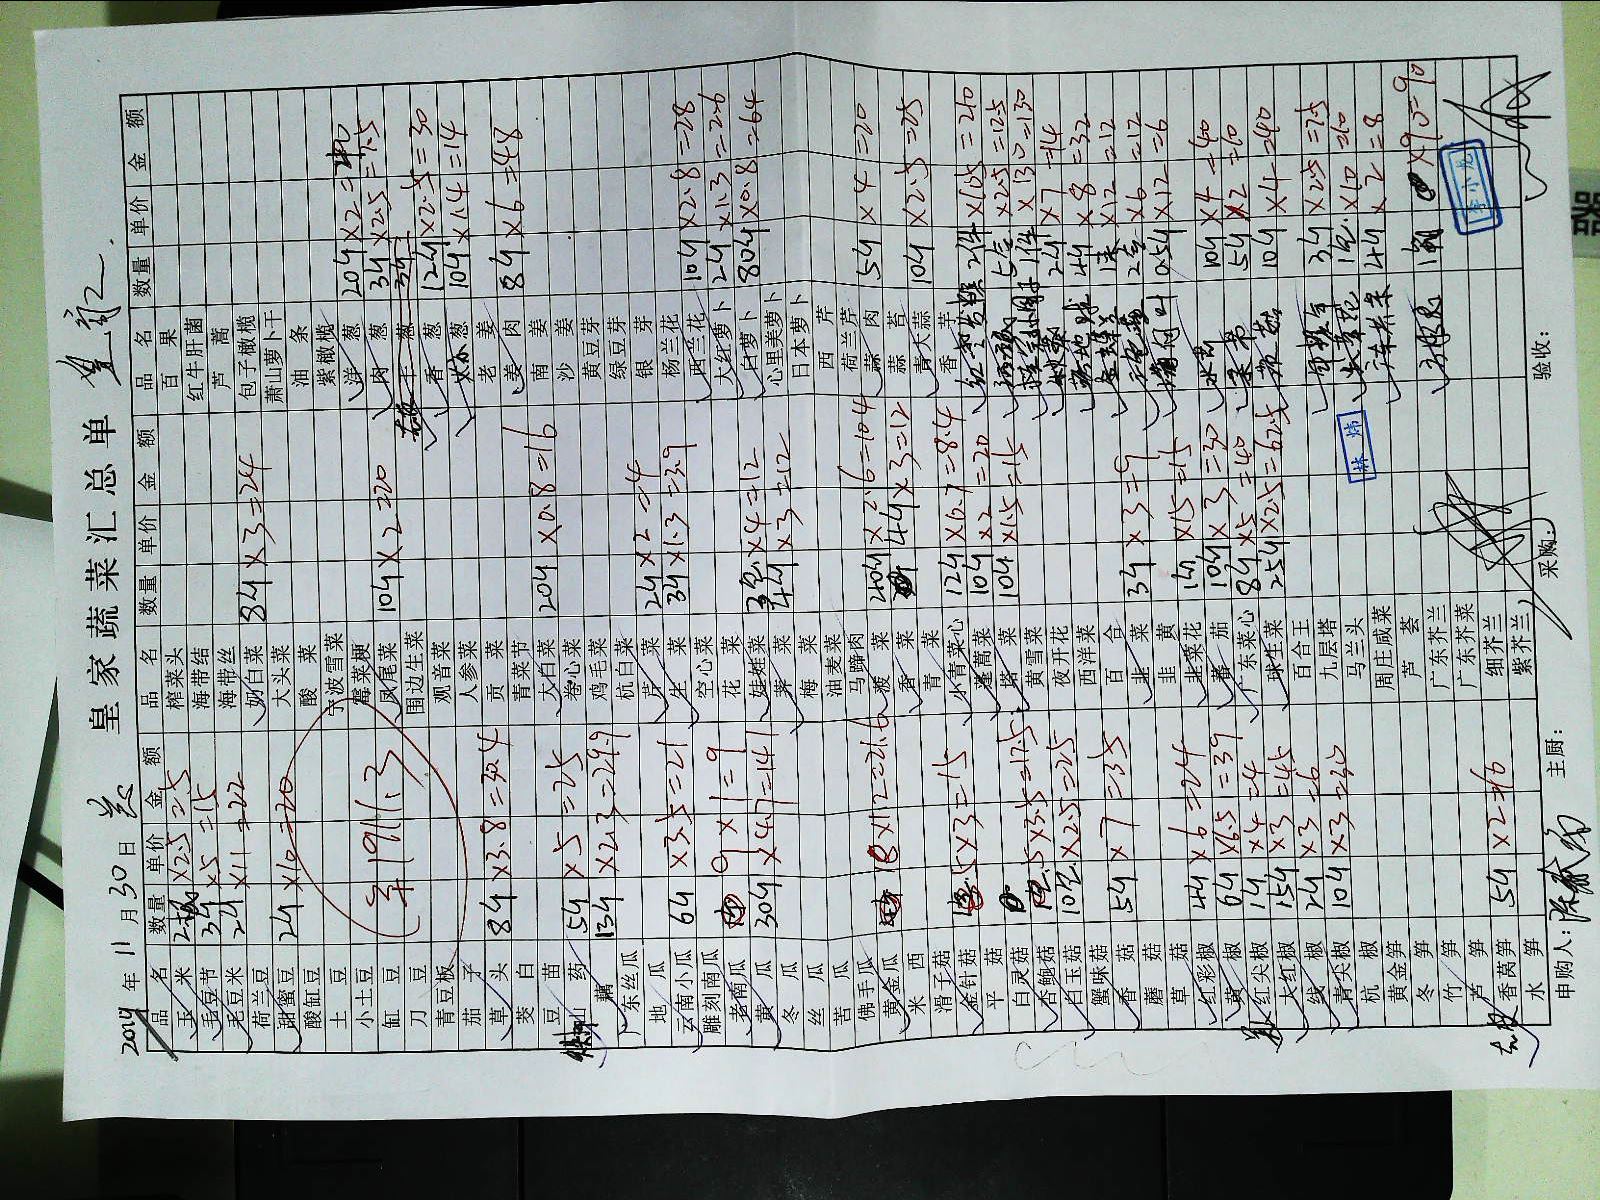 皇家蔬菜汇总单
2014年 11月 30日
品名 数量 单价 金额
玉米 ×2.5=25
毛豆节 3斤 ×5=15
毛豆米 2斤 ×11=22
荷兰豆
甜蜜豆 2斤 ×10=20
酸缸豆
土豆
小土豆
缸豆 1911.3
刀豆
青豆板
茄子
草头 8斤 ×3.8=30.4
茭白
豆苗
山药 5斤 ×5=25
藕 13斤 ×2.3=29.9
广东丝瓜
地瓜
云南小瓜 6斤 ×3.5=21
雕刻南瓜
老南瓜 9×1=9
黄瓜 30斤 ×4.7=141
冬瓜
丝瓜
苦瓜
佛手瓜
黄金瓜 18×1.2=21.6
米西
滑子菇
金针菇 5×3=15
平菇
白灵菇
杏鲍菇 5×3.5=17.5
白玉菇 10包 ×2.5=25
蟹味菇
香菇 5斤 ×7=35
蘑菇
草菇
红彩椒 4斤 ×6=24
黄椒 6斤 ×6.5=39
红尖椒 1斤 ×4=4
大红椒 15斤 ×3=45
线椒 2斤 ×3=6
青尖椒 10斤 ×3=30
杭椒
黄金笋
冬笋
竹笋
芦笋
香莴笋 5斤 ×2=10
水笋
品名 数量 单价 金额
榨菜头
海带结
海带丝
奶白菜 8斤 ×3=24
大头菜
酸菜
宁波雪菜
霉菜梗
凤尾菜 10斤 ×2=20
围边生菜
观音菜
人参菜
贡菜
青菜节
大白菜 20斤 ×0.8=16
卷心菜
鸡毛菜
杭白菜
芹菜 2斤 ×2=4
生菜 3斤 ×1.3=3.9
空心菜
花菜
娃娃菜 3包 ×4=12
荠菜 4斤 ×3=12
梅菜
油麦菜
马蹄肉
菠菜 40斤 ×2.6=104
香菜 4斤 ×3=12
青菜
小青菜心 12斤 ×0.7=8.4
蓬蒿菜 10斤 ×2=20
塔菜 10斤 ×1.5=15
黄雪菜
夜开花
西洋菜
百合
韭菜 3斤 ×3=9
韭黄
韭菜花 1斤 ×15=15
番茄 10斤 ×3=30
广东菜心 8斤 ×5=40
球生菜 25斤 ×2.5=62.5
百合王
九层塔
马兰头
周庄咸菜
芦荟
广东芥兰
广东芥菜
细芥兰
紫芥兰
品名 数量 单价 金额
百果
红牛肝菌
芦蒿
包子橄榄
萧山萝卜干
油条
紫橄榄
洋葱 20斤 ×2=40
肉葱 3斤 ×2.5=7.5
香葱 12斤 ×2.5=30
葱 10斤 ×1.4=14
老姜
姜肉 8斤 ×6=48
南姜
沙姜
黄豆芽
绿豆芽
银芽
杨兰花
西兰花 10斤 ×2.8=28
大红萝卜 2斤 ×1.3=2.6
白萝卜 80斤 ×0.8=64
心里美萝卜
日本萝卜
西芹
荷兰芹
蒜肉 5斤 ×4=20
蒜苔
青大蒜 10斤 ×2.5=25
香芋
2件 ×105=210
5盒 ×2.5=12.5
1件 ×130=130
2斤 ×7=14
4斤 ×8=32
×12=12
2盒 ×6=12
0.5斤 ×12=6
10斤 ×4=40
5斤 ×2=10
10斤 ×4=40
3斤 ×2.5=7.5
1包 ×10=10
4斤 ×2=8
×90=90
申购人：
主厨：
采购：
验收：
林炜
李小龙